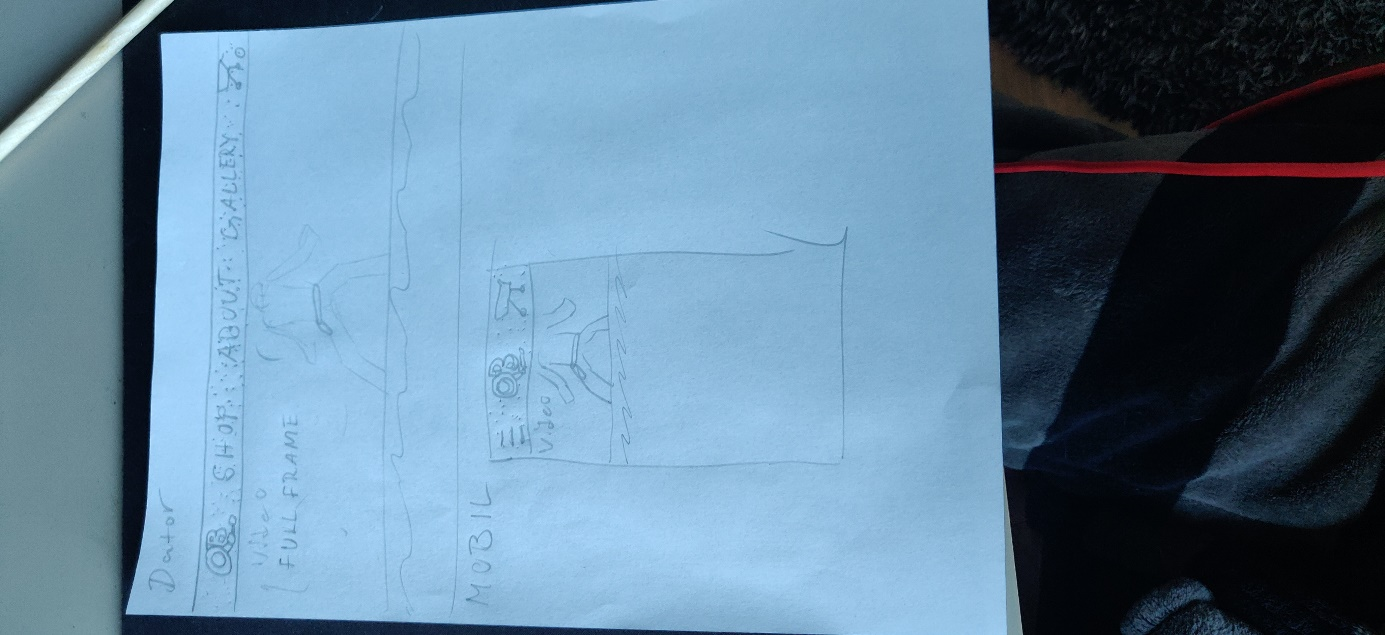 Dator
OB SHOP ABOUT GALLERY
Video
FULL FRAME
MOBIL
OB
Video